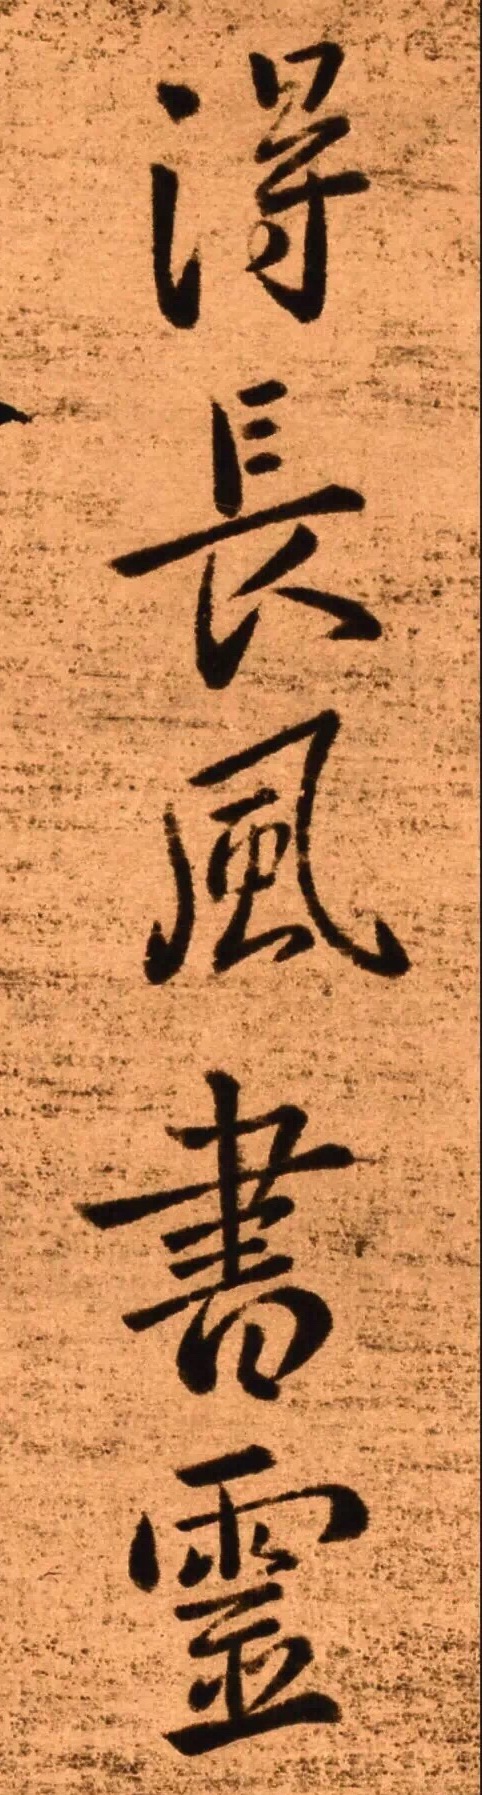 得長風書靈